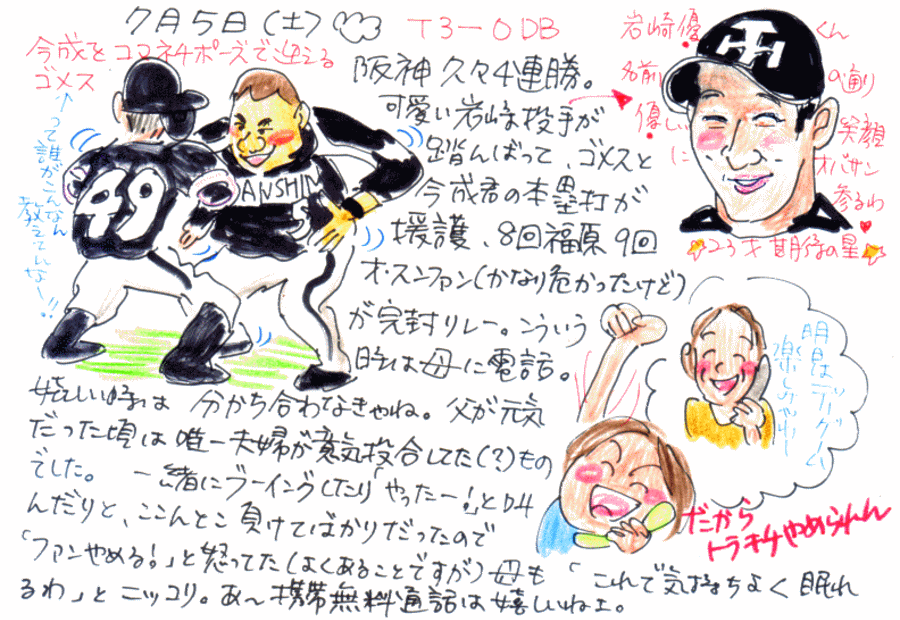 7月5日(土)
T3-0DB
今成をコマネチポーズで迎える
ゴメス
↑って誰がこんなん
教えてんな〜!!
49
HANSHIN
阪神 久々4連勝。
可愛い岩崎投手が
踏んばって、ゴメスと
今成君の本塁打が
援護、8回福原9回
オ・スンファン(かなり危かったけど)
が完封リレー。こういう
時は母に電話。
HT
岩崎優くん
名前の通り
優しい笑顔
にオバサン
参るわ
23才 期待の星
明日はデーゲーム
楽しみやわ〜
嬉しい時は 分かち合わなきゃね。父が元気
だった頃は唯一夫婦が意気投合してた(?)もの
でした。 一緒にブーイングしたり「やったー!」と叫
んだりと、ここんとこ負けてばかりだったので
「ファンやめる!」と怒ってた(よくあることですが)母も「これで気持ちよく眠れ
るわ」とニッコリ。あ〜携帯無料通話は嬉しいねエ。
だから
トラキチやめられん